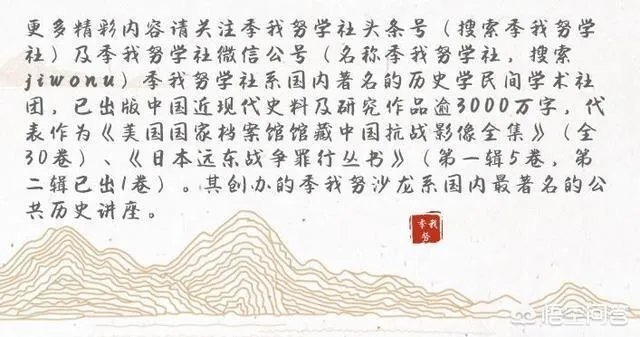 更多精彩内容请关注季我努学社头条号（搜索季我努学
社）及季我努学社微信公号（名称季我努学社，搜索
jiwonu）季我努学社系国内著名的历史学民间学术社
团，已出版中国近现代史料及研究作品逾3000万字，代
表作为《美国国家档案馆馆藏中国抗战影像全集》（全
30卷）、《日本远东战争罪行丛书》（第一辑5卷，第
二辑已出1卷）。其创办的季我努沙龙系国内最著名的公
共历史讲座。
季我
努
悟空问答